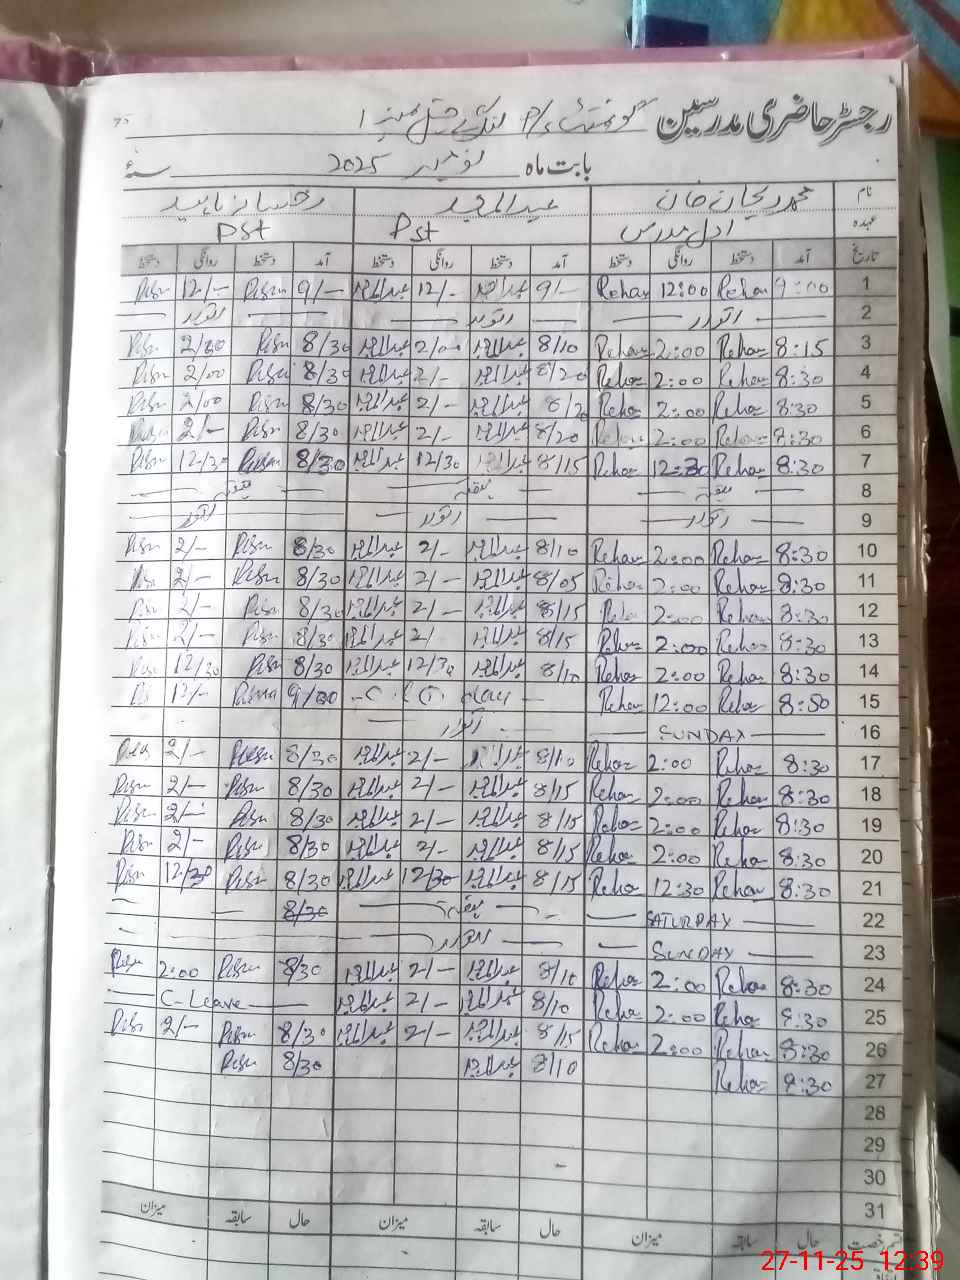 رجسٹر حاضری مدرسین گورنمنٹ
بابت ماہ نومبر 2025 سنہ
نام محمد ریحان خان عبدالمجید رخسانہ ناہید
عہدہ اول مدرس Pst PSt
تاریخ آمد دستخط روانگی دستخط آمد دستخط روانگی دستخط آمد دستخط روانگی دستخط
1 9:00 Rehan 12:00 Rehan 9/- عبدالمجید 12/- عبدالمجید 9/- 12/-
2 اتوار اتوار اتوار
3 8:15 Rehan 2:00 Rehan 8/10 عبدالمجید 2/00 عبدالمجید 8/30
4 8:30 Rehan 2:00 Rehan 8/20 عبدالمجید 2/- عبدالمجید 8/30 2/00
5 8:30 Rehan 2:00 Rehan عبدالمجید 2/- عبدالمجید 8/30 2/00
6 8:30 Rehan 2:00 Rehan 8/20 عبدالمجید 2/- عبدالمجید 8/30 2/-
7 8:30 Rehan 12:30 Rehan 8/15 عبدالمجید 12/30 عبدالمجید 8/30 12/30
8 ہفتہ ہفتہ ہفتہ
9 اتوار اتوار اتوار
10 8:30 Rehan 2:00 Rehan 8/10 عبدالمجید 2/- عبدالمجید 8/30 2/-
11 8:30 Rehan 2:00 Rehan 8/05 عبدالمجید 2/- عبدالمجید 8/30 2/-
12 8:30 Rehan 2:00 Rehan 8/15 عبدالمجید 2/- عبدالمجید 8/30 2/-
13 8:30 Rehan 2:00 Rehan 8/15 عبدالمجید 2/- عبدالمجید 8/30 2/-
14 8:30 Rehan 2:00 Rehan 8/10 عبدالمجید 12/30 عبدالمجید 8/30 12/30
15 8:50 Rehan 12:00 Rehan 9/00 12/-
16 SUNDAY اتوار
17 8:30 Rehan 2:00 Rehan 8/10 عبدالمجید 2/- عبدالمجید 8/30 2/-
18 8:30 Rehan 2:00 Rehan 8/15 عبدالمجید 2/- عبدالمجید 8/30 2/-
19 8:30 Rehan 2:00 Rehan 8/15 عبدالمجید 2/- عبدالمجید 8/30 2/-
20 8:30 Rehan 2:00 Rehan 8/15 عبدالمجید 2/- عبدالمجید 8/30 2/-
21 8:30 Rehan 12:30 Rehan 8/15 عبدالمجید 12/30 عبدالمجید 8/30 12/30
22 SATURDAY ہفتہ 8/30
23 SUNDAY اتوار
24 8:30 Rehan 2:00 Rehan 8/10 عبدالمجید 2/- عبدالمجید 8/30 2:00
25 8:30 Rehan 2:00 Rehan 8/10 عبدالمجید 2/- عبدالمجید C-Leave
26 8:30 Rehan 2:00 Rehan 8/15 عبدالمجید 2/- عبدالمجید 8/30 2/-
27 8:30 Rehan 8/10 عبدالمجید 8/30
28
29
30
31
قسم رخصت حال سابقہ میزان حال سابقہ میزان حال سابقہ میزان
27-11-25 12:39